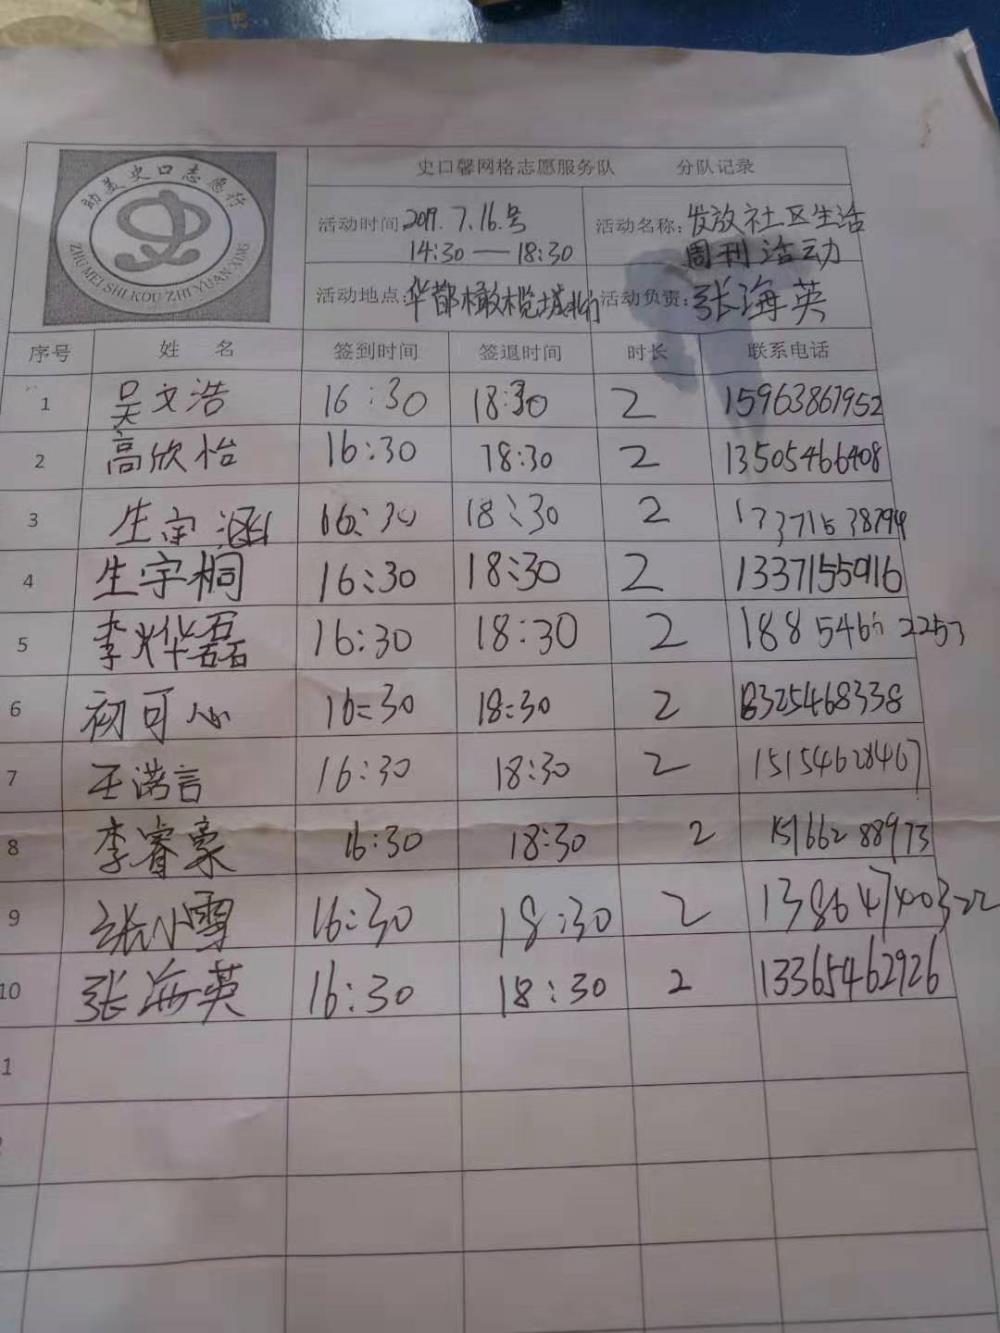 助美史口志愿行
ZHU MEI SHI KOU ZHI YUAN XING
史口馨网格志愿服务队 分队记录
活动时间: 2019.7.16.号
14:30—18:30
活动名称: 发放社区生活
周刊活动
活动地点: 华都橄榄城
活动负责: 张海英
序号 姓 名 签到时间 签退时间 时长 联系电话
1 吴文浩 16:30 18:30 2 15963867952
2 高欣怡 16:30 18:30 2 13505466408
3 生宇涵 16:30 18:30 2
4 生宇桐 16:30 18:30 2 13371555916
5 李烨磊 16:30 18:30 2
6 初可心 16:30 18:30 2
7 王澔言 16:30 18:30 2 15154628467
8 李睿豪 16:30 18:30 2 15166288973
9 张小雪 16:30 18:30 2
10 张海英 16:30 18:30 2 13365462926